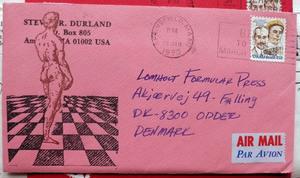 STEV R. DURLAND
Box 805
Am MA 01002 USA
PM
LOMHOLT FORMULAR PRESS
AKJÆRVEJ 49 - FALLING
DK-8300 ODDER
DENMARK
AIR MAIL
PAR AVION